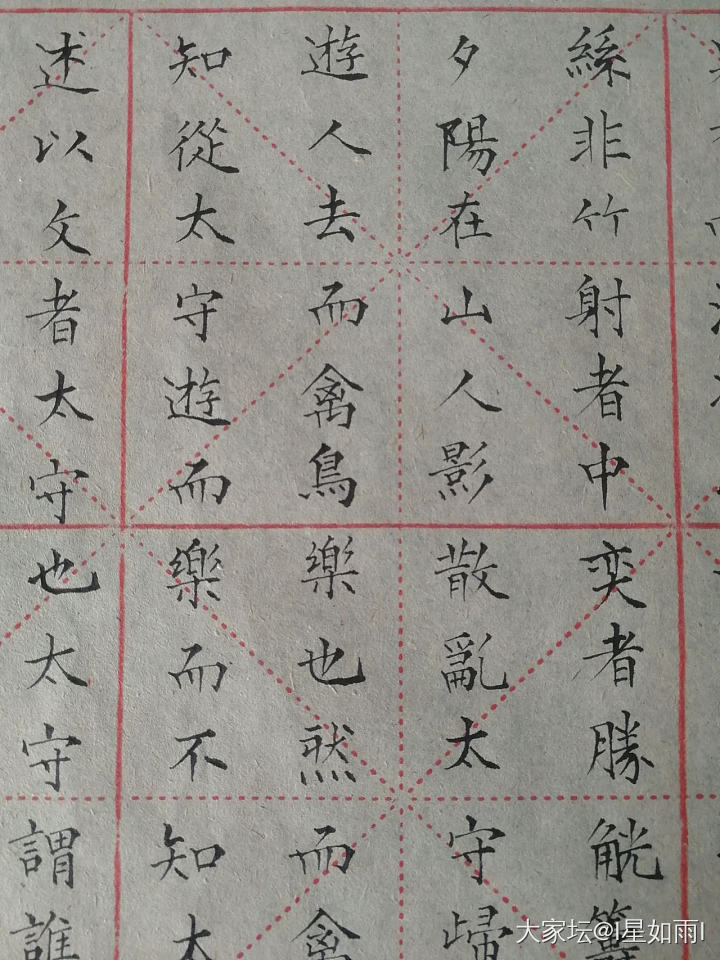 絲非竹射者中奕者勝觥籌
夕陽在山人影散亂太守歸
遊人去而禽鳥樂也然而禽
知從太守遊而樂而不知太
述以文者太守也太守謂誰
大家坛@I星如雨I